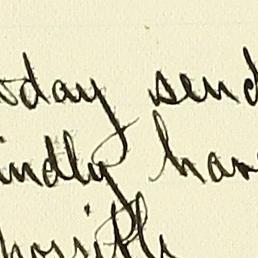 oday send
indly hav
possible